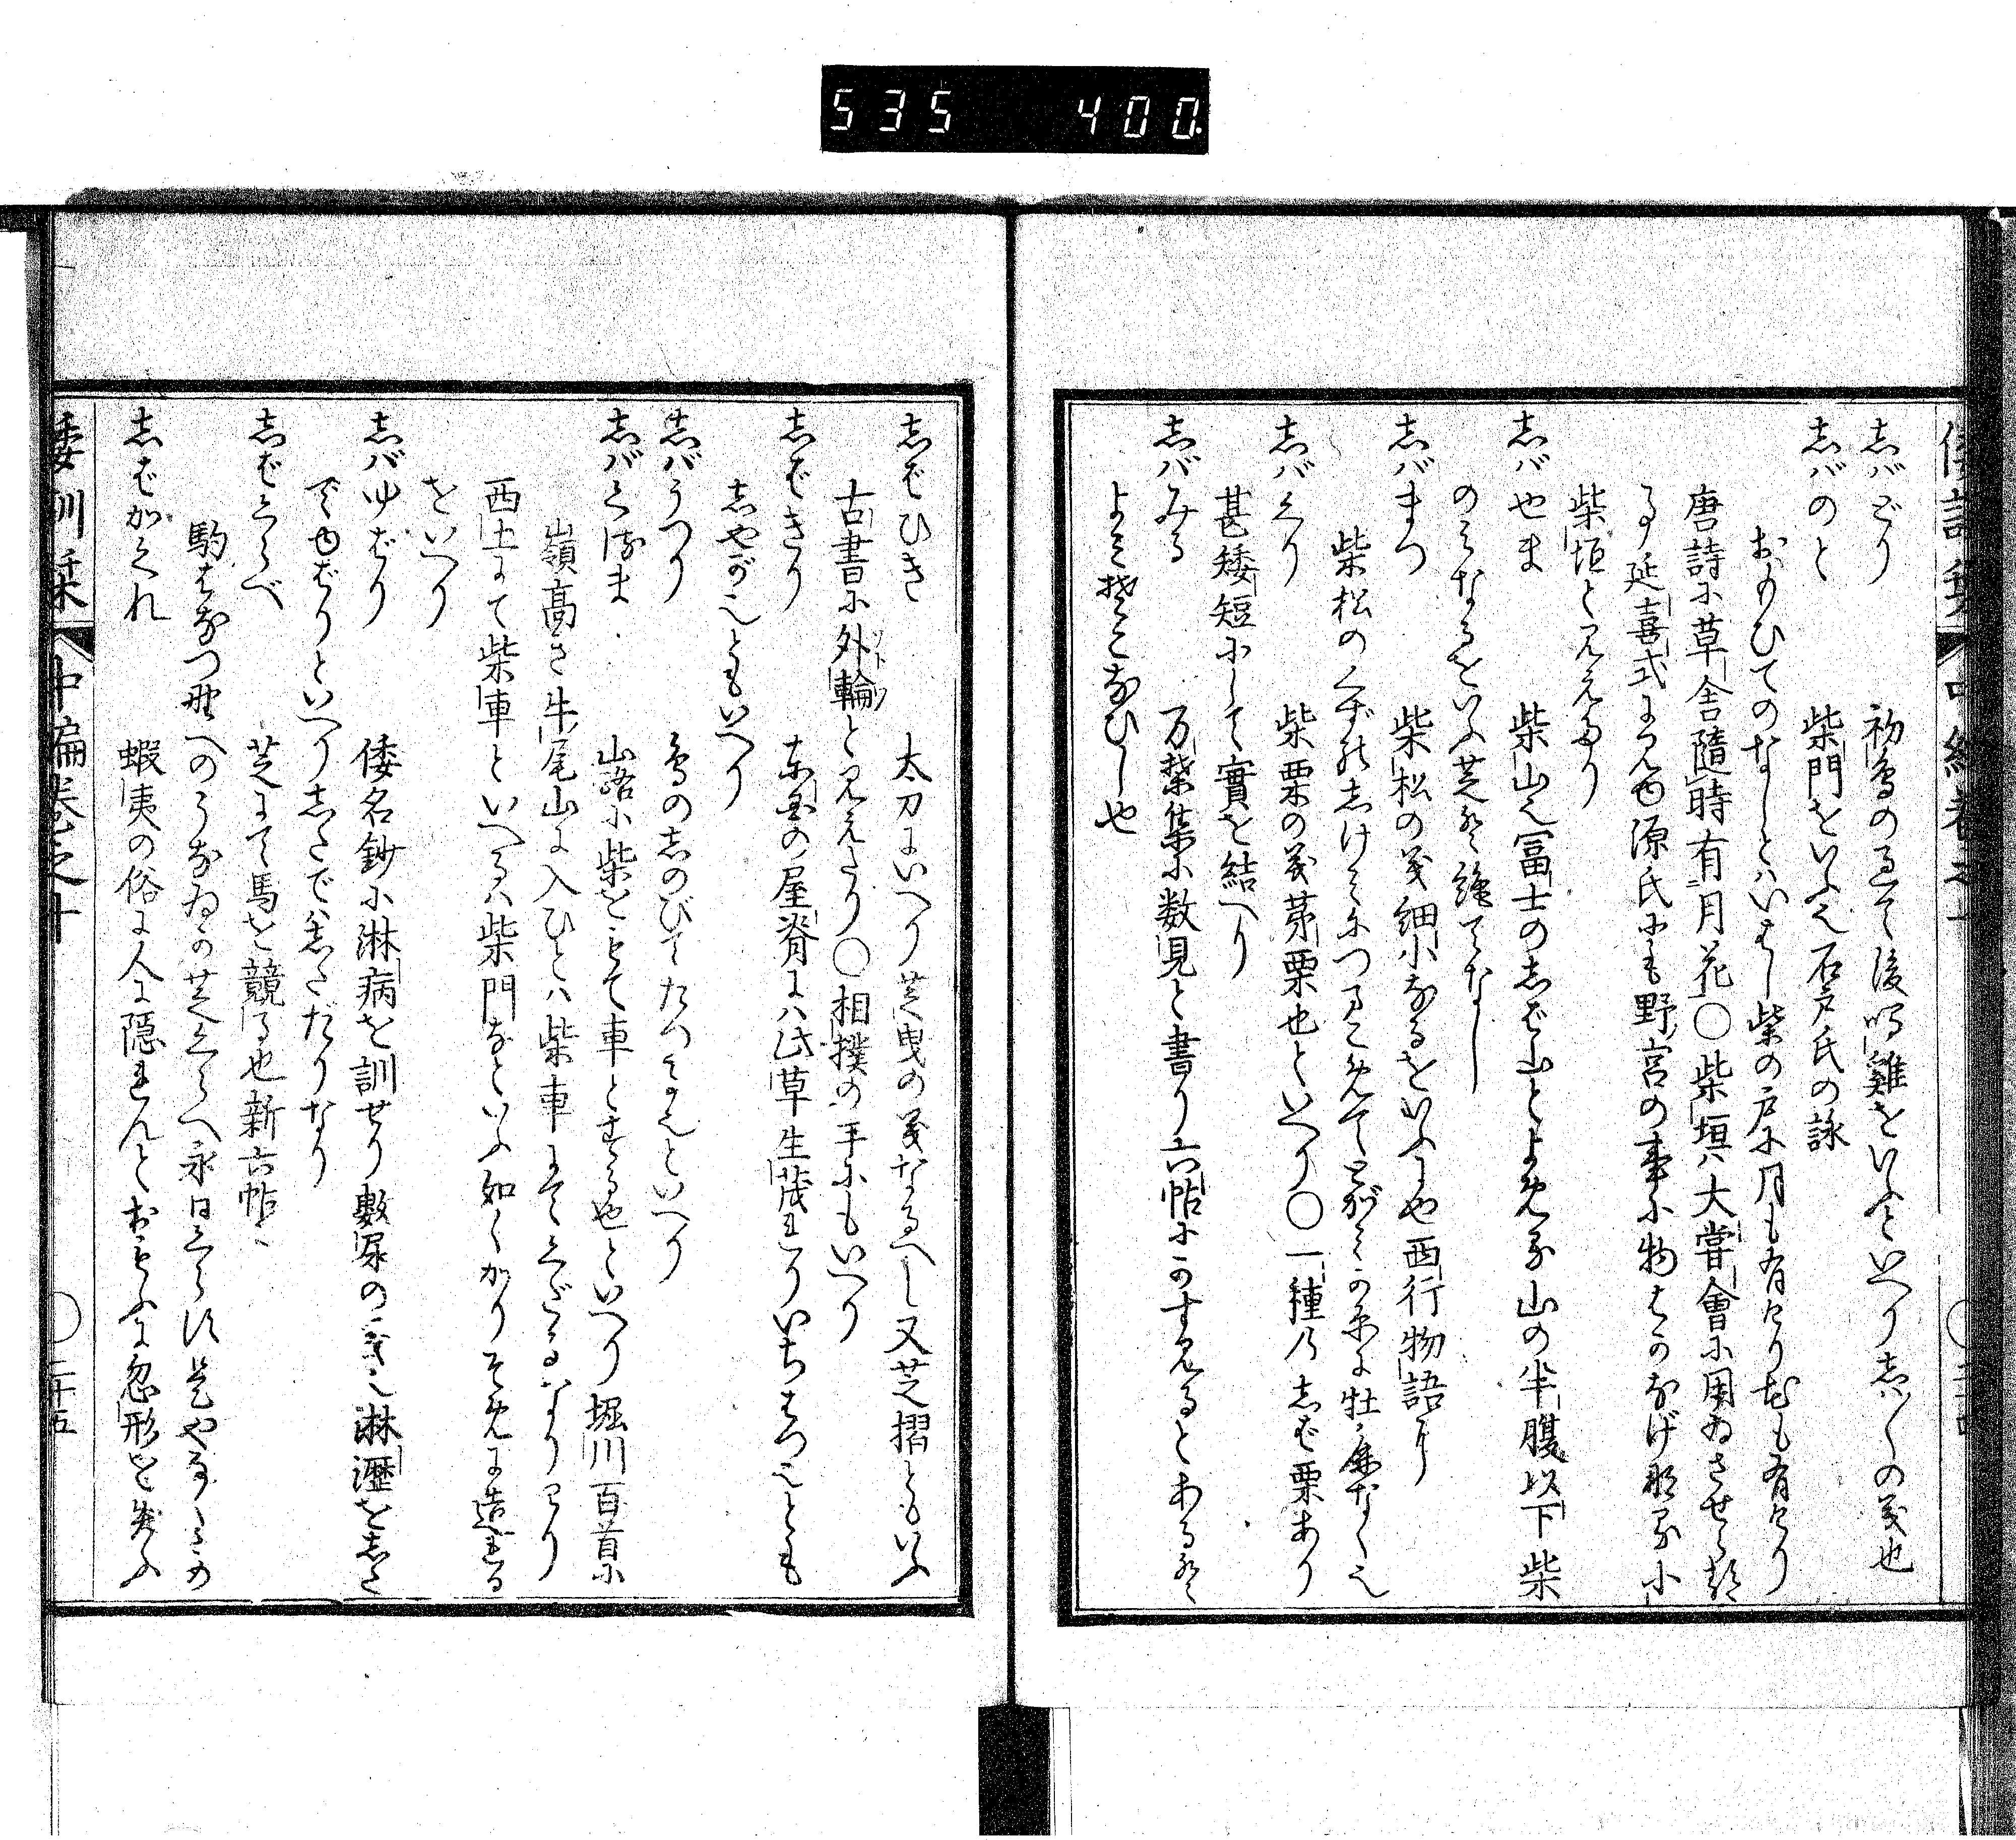 535 400
志バどり 初鳥の通て後鳴雞をいふといへり志バ〱の義也
志バのと 柴門をいふ也石戸氏の詠
おもひてのなしとハいはし柴の戸に月も有けり花も有けり
唐詩に草舎隨時有月花〇柴垣ハ大嘗會に用ゐさせらる
る事延喜式に見ゆ源氏にも野宮の事に物はかなげなる小
柴垣と見えたり
志バやま 柴山也冨士の志ば山とよめる山の半腹以下柴
のみなるをいふ芝は絶てなし
志バまつ 柴松の義細小なるをいふにや西行物語に
柴松のくず
志バくり 柴栗の義茅栗也といへり〇一種の志ば栗あり
甚矮短にして實を結へり
志バみる 万葉集に数見と書り六帖にかすみるとあるは
よみそこなひし也
志ばひき 太刀にいへり芝曳の義なるへし又芝摺ともいふ
古書に外輪と見えたり〇相撲の手にもいへり
ソトワ
志ばきり 東国の屋脊にハ此草生茂れりいちはつ也とも
志やが也ともいへり
志バうつり 鳥の志のびてたつをよむといへり
志バくるま 山路に柴をもて車とする也といへり堀川百首に
嶺高き牛尾山に入ひとハ柴車にてくだるなりけり
西土にて柴車といへるハ柴門などいふ如くかりそめに造れる
をいへり
志バゆばり 倭名鈔に淋病を訓せり數尿の義也淋瀝を志た
でゆばりといへり志たでハ志ただりなり
志ばくらべ 芝にて馬を競る也新六帖に
駒はなつ野へのうなゐの芝くらへ永日くらす
志ばがくれ 蝦夷の俗に人に隠れんとおもふに忽形を失ふ
倭訓栞 中編巻之十 〇二十五